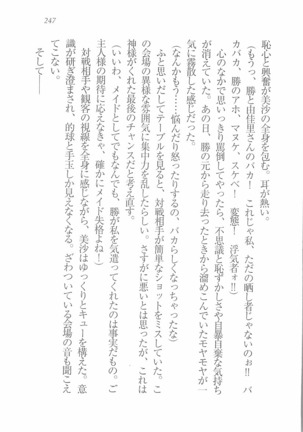 247
恥じと興奮が美沙の全身を包む。耳が熱い。
(もうっ、勝と由佳里さんのバカ! これじゃ私、ただの晒し者じゃないのぉ!! バ
カバカ、勝のアホ、マヌケ、スケベ! 変態! 浮気者ォ!!)
心のなかで思いっきり罵倒してやったら、不思議と恥ずかしさや自暴自棄な気持ち
が消えていた。あの日、勝の元から走り去ったときから溜めこんでいたモヤモヤが一
気に霧散した感じだった。
(なんかもう……悩んだり怒ったりするの、バカらしくなっちゃったな)
ふと思いだしてテーブルを見ると、対戦相手が簡単なショットをミスしていた。こ
の会場の異様な雰囲気に集中力を乱したらしい。さすがに悪いとは思ったが、これは
神様がくれた最後のチャンスだと考え直す。
(いいわ、メイドとしてでもなんでも、勝が私を気遣ってくれたのは事実だもの。ご
主人様の期待に応えなきゃ、確かにメイド失格よね!)
対戦相手や観客の視線を全身に感じながら、美沙はゆっくりとキューを構えた。意
識が研ぎ澄まされ、的球と手玉しか見えなくなる。ざわついている会場の音も聞こえ
なくなる。
そして——